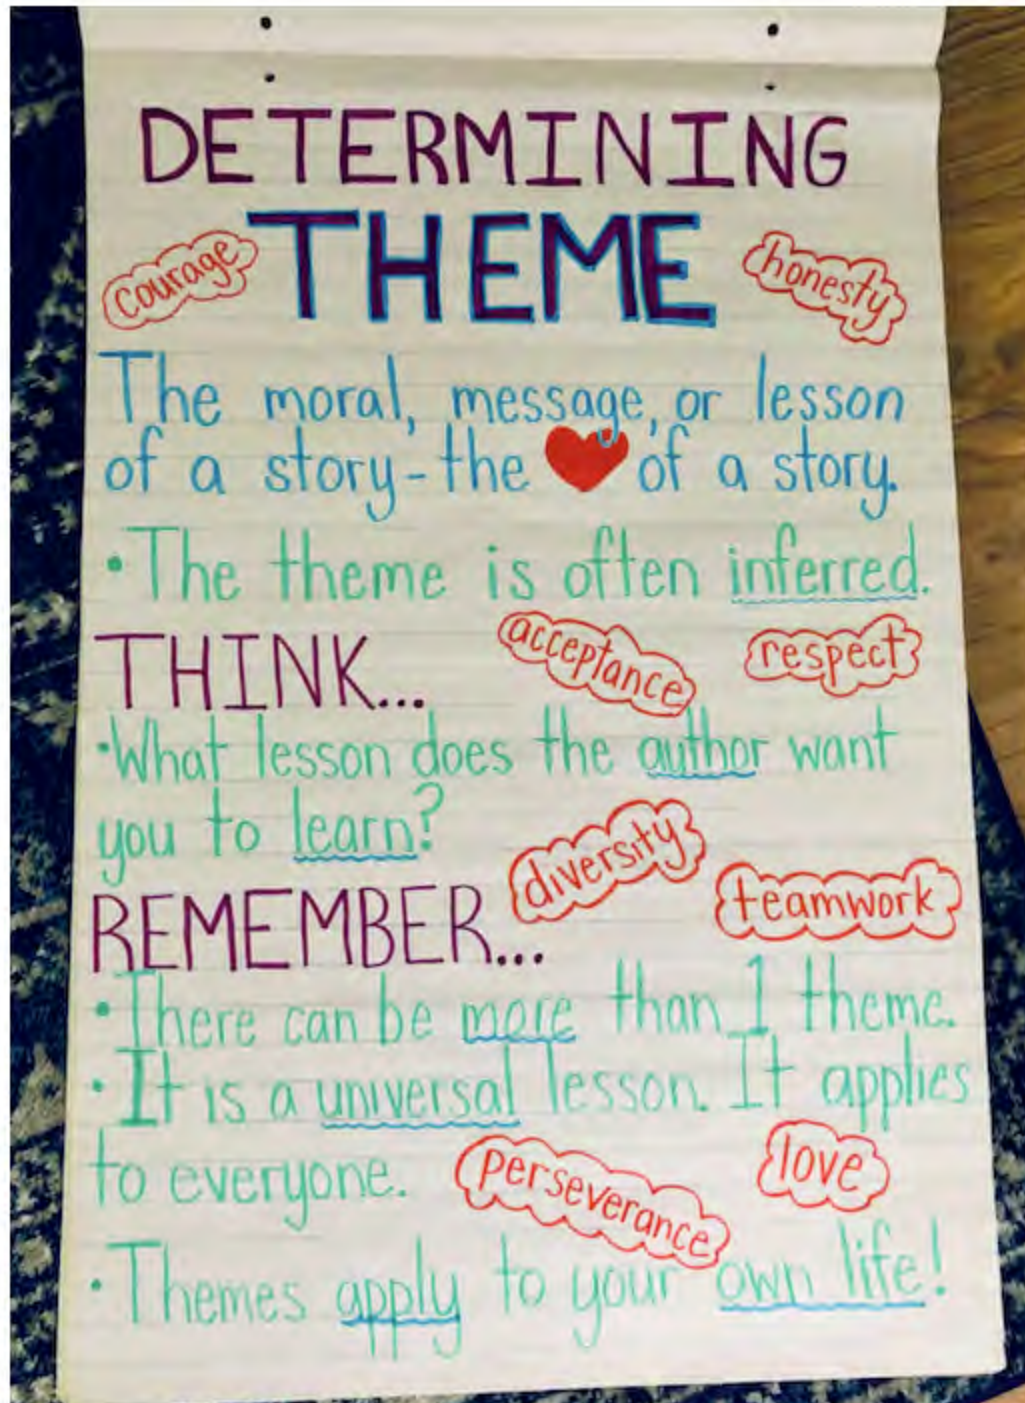 DETERMINING
THEME
courage
honesty
The moral, message, or lesson
of a story-the ❤ of a story.
•The theme is often inferred.
THINK...
acceptance
respect
•What lesson does the author want
you to learn?
diversity
teamwork
REMEMBER...
•There can be more than 1 theme.
•It is a universal lesson. It applies
to everyone.
perseverance
love
•Themes apply to your own life!